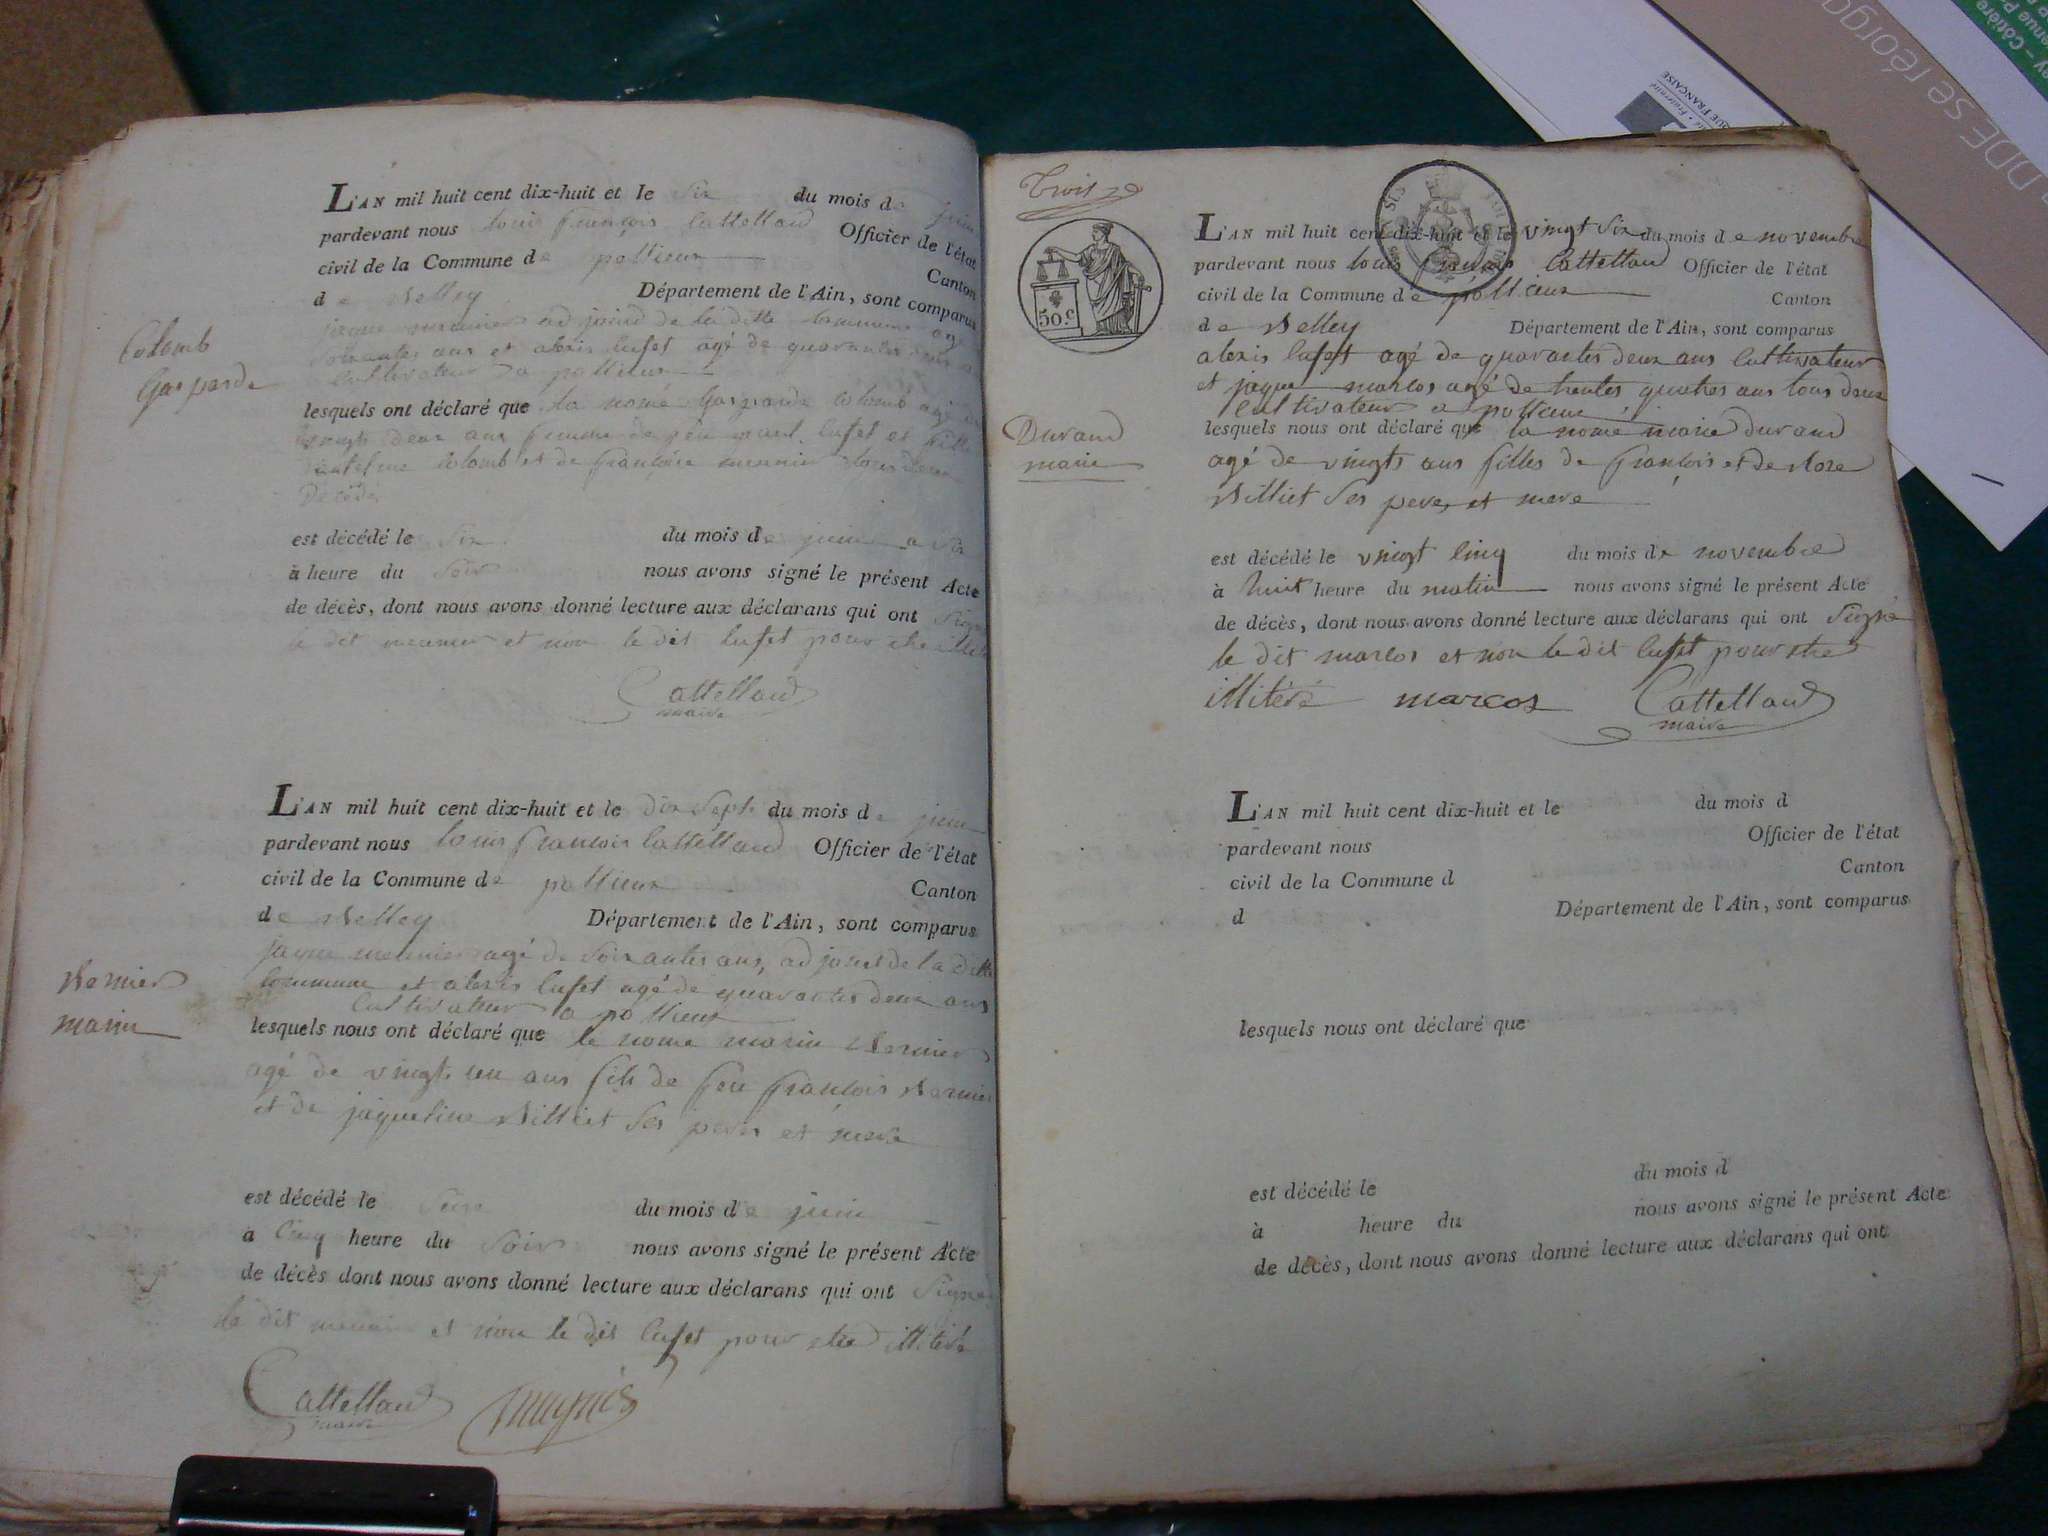 L'AN mil huit cent dix-huit et le six du mois de juin
pardevant nous louis françois Cattelland Officier de l'état
civil de la Commune de pollieux Canton
de Belley Département de l'Ain, sont comparus
jaque meunier adjoind de la ditte commune agé
soixantes ans et alexis lufet agé de quarantes deux
Cultivateur a pollieux
Colomb
Gasparde
lesquels ont déclaré que la nomé Gasparde Colomb agé de
vingts deux ans femme de feu lufet et fille
colomb et de françoise meunier tous deux
Décédés
est décédé le six du mois de juin a six
à heure du soir nous avons signé le présent Acte
de décès, dont nous avons donné lecture aux déclarans qui ont Signé
le dit meunier et non le dit lufet pour etre illité
Cattelland
maire
L'AN mil huit cent dix-huit et le dix sept du mois de juin
pardevant nous louis françois Cattelland Officier de l'état
civil de la Commune de pollieux Canton
de Belley Département de l'Ain, sont comparus
jaque meunier agé de soixantes ans, adjoint de la ditte
commune et alexis lufet agé de quarantes deux ans
Cultivateur a pollieux
Bernier
marin
lesquels nous ont déclaré que le nomé marin Bernier
agé de vingts un ans fils de feu françois Bernier
et de jaqueline Billiet ses peres et mere
est décédé le du mois de juin
à Cinq heure du Soir nous avons signé le présent Acte
de décès dont nous avons donné lecture aux déclarans qui ont Signé
le dit meunier et non le dit lufet pour etre illitéré
Cattelland
maire
Trois
50.c
L'AN mil huit cent dix-huit et le vingt six du mois de novembre
pardevant nous louis françois Cattelland Officier de l'état
civil de la Commune de pollieux Canton
de Belley Département de l'Ain, sont comparus
alexis lufet agé de quarantes deux ans Cultivateur
et jaque marcos agé de trentes quatres ans tous deux
Cultivateur a pollieux
Durand
marie
lesquels nous ont déclaré que la nomé marie durand
agé de vingts ans filles de françois et de Rose
Billiet ses peres et mere
est décédé le vingt cinq du mois de novembre
à huit heure du matin nous avons signé le présent Acte
de décès, dont nous avons donné lecture aux déclarans qui ont Signé
le dit marcos et non le dit lufet pour etre
illitéré marcos Cattelland
maire
L'AN mil huit cent dix-huit et le du mois d
pardevant nous Officier de l'état
civil de la Commune d Canton
d Département de l'Ain, sont comparus
lesquels nous ont déclaré que
est décédé le du mois d
à heure du nous avons signé le présent Acte
de décès, dont nous avons donné lecture aux déclarans qui ont
DDE se réorga